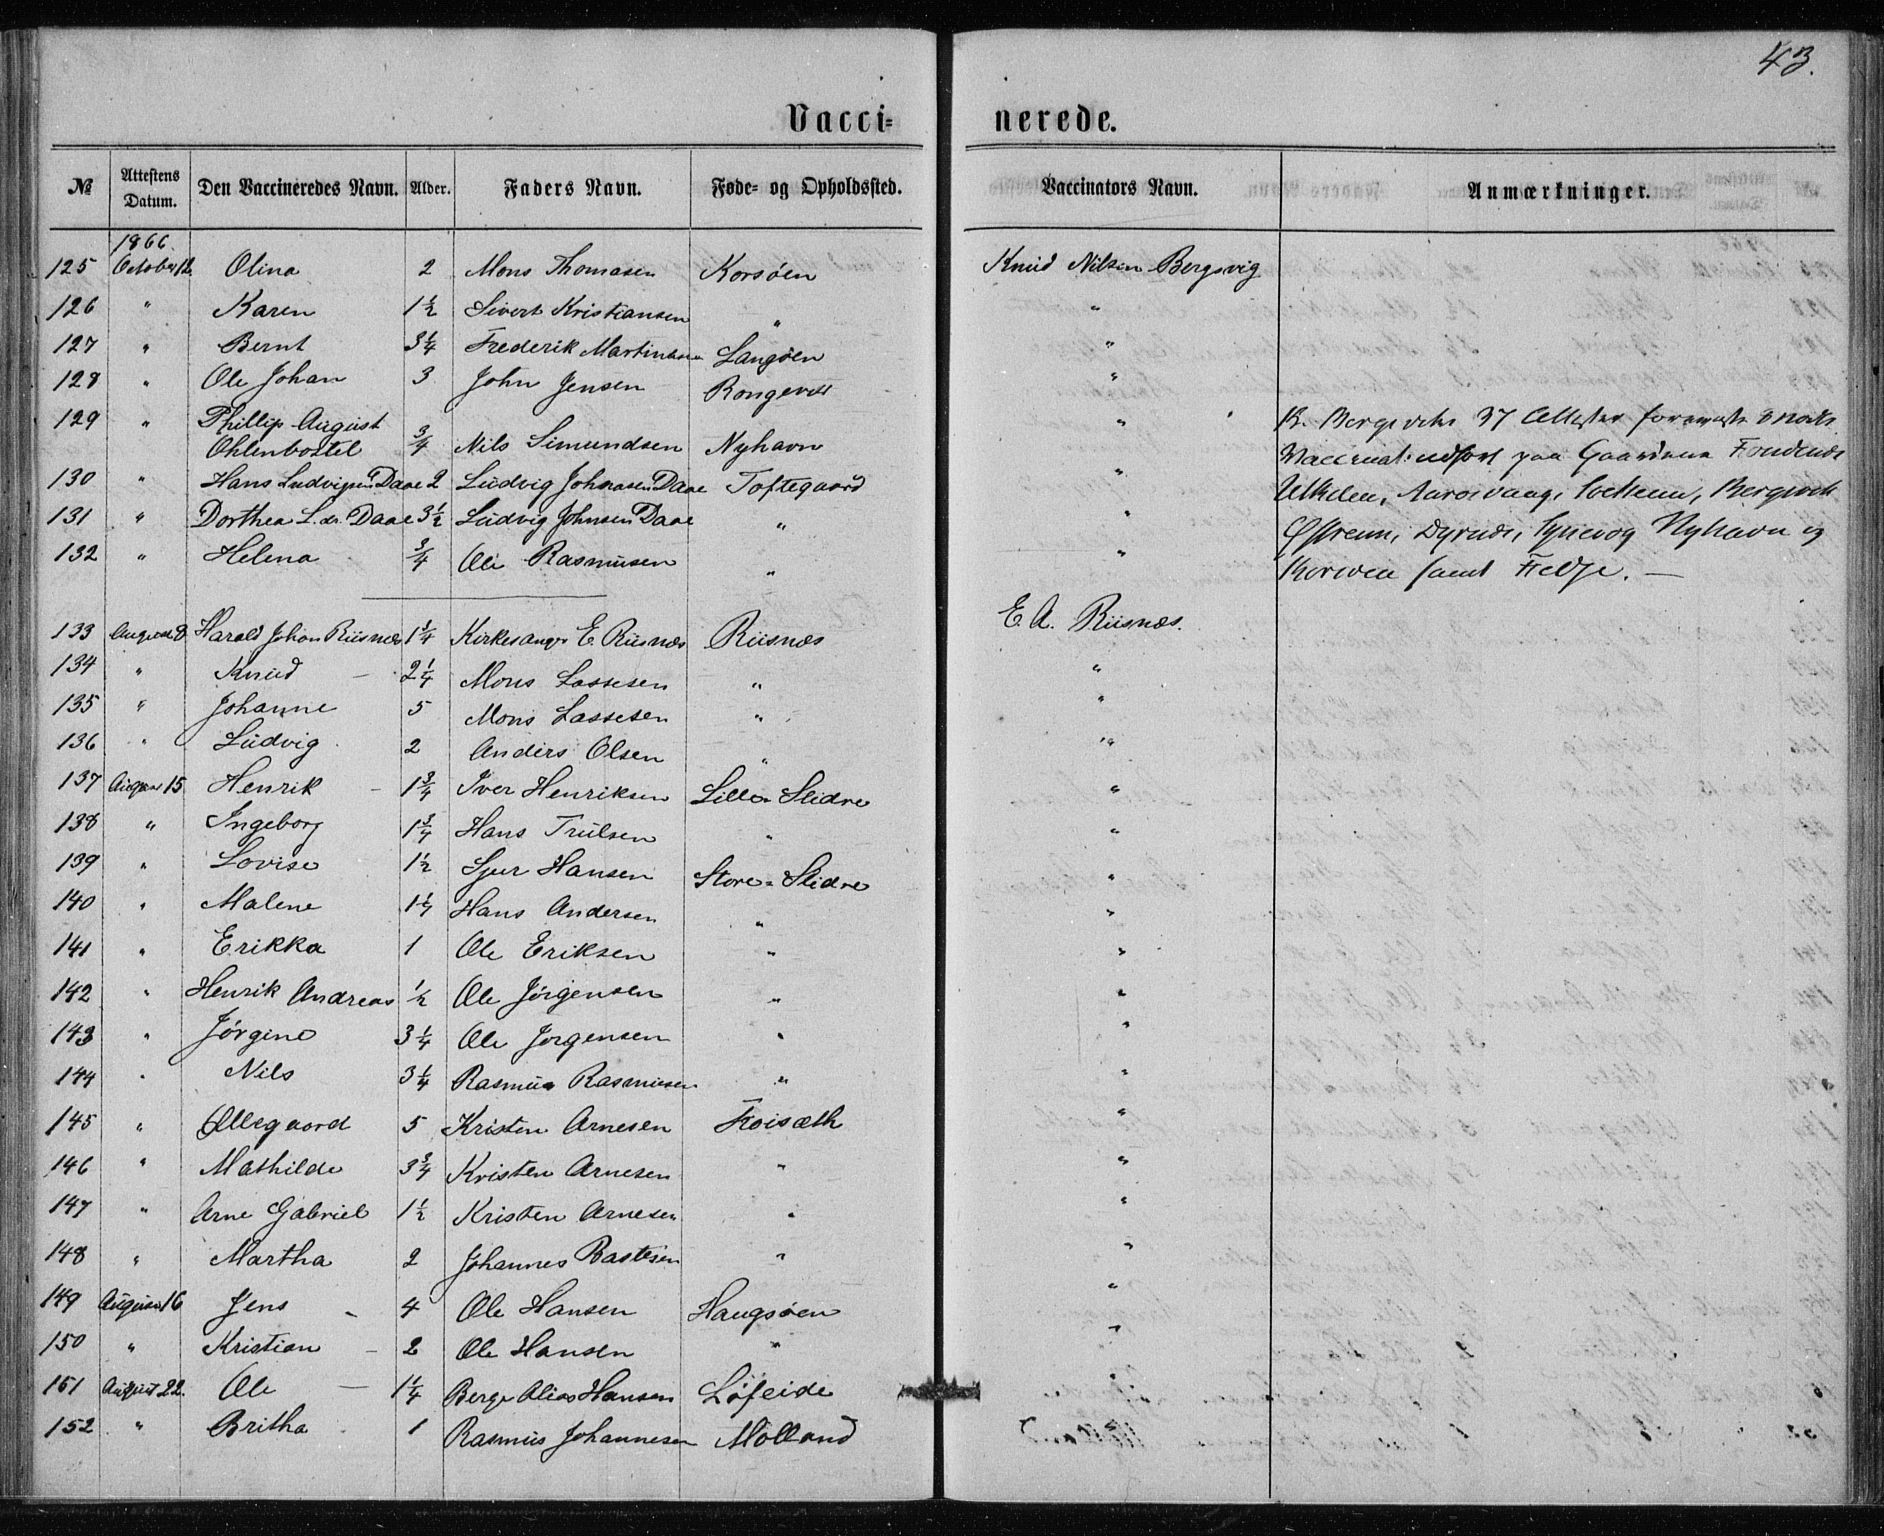 43.
Vacci= nerede.
№ Attestens Datum. Den Vaccineredes Navn. Alder. Faders Navn. Føde= og Opholdssted. Vaccinators Navn. Anmærkninger.
1866.
125 October 12 Olina 2 Mons Thomasen Korsøen Knud Nilsen Bergsvig
126 " Karen 1½ Sivert Kristiansen " "
127 " Bernt 3¼ Frederik Martinsen Langøen "
128 " Ole Johan 3 John Jensen "
129 " Phillip August
Ohlenbostel ¾ Nils Simundsen Nyhavn "
130 " Hans Ludvigsen Daae 2 Ludvig Johnsen Daae Toftegaard "
131 " Dorthea L. dr. Daae 3½ Ludvig Johnsen Daae " "
132 " Helena ¾ Ole Rasmusen " "
37 Attester
paa Gaardene
Nyhavn og
samt Fedje. —
133 August 8 Harald Johan Riisnæs 1¾ Kirkesanger E. Riisnæs Riisnæs E. A. Riisnæs.
134 " Knud 2¼ Mons Lassesen " "
135 " Johanne 5 Mons Lassesen " "
136 " Ludvig 2 Anders Olsen " "
137 August 15 Henrik 1¾ Iver Henriksen Lille=Slidre "
138 " Ingeborg 1¾ Hans Trulsen " "
139 " Lovise 1½ Sjur Hansen Store=Slidre "
140 " Malene 1¼ Hans Andersen " "
141 " Erikka 1 Ole Eriksen " "
142 " Henrik Andreas ½ Ole Jørgensen " "
143 " Jørgine 3¼ Ole Jørgensen " "
144 " Nils 3¼ Rasmus Rasmusen " "
145 " Ollegaard 5 Kristen Arnesen Froisæth "
146 " Mathilde 3¾ Kristen Arnesen " "
147 " Arne Gabriel 1½ Kristen Arnesen " "
148 " Martha 2 Johannes Bastesen " "
149 August 16 Jens 4 Ole Hansen Haugsøen "
150 " Kristian 2 Ole Hansen " "
151 August 22. Ole 1¼ Berge Alias Hansen Løfeide "
152 " Britha 1 Rasmus Johannesen Mølland